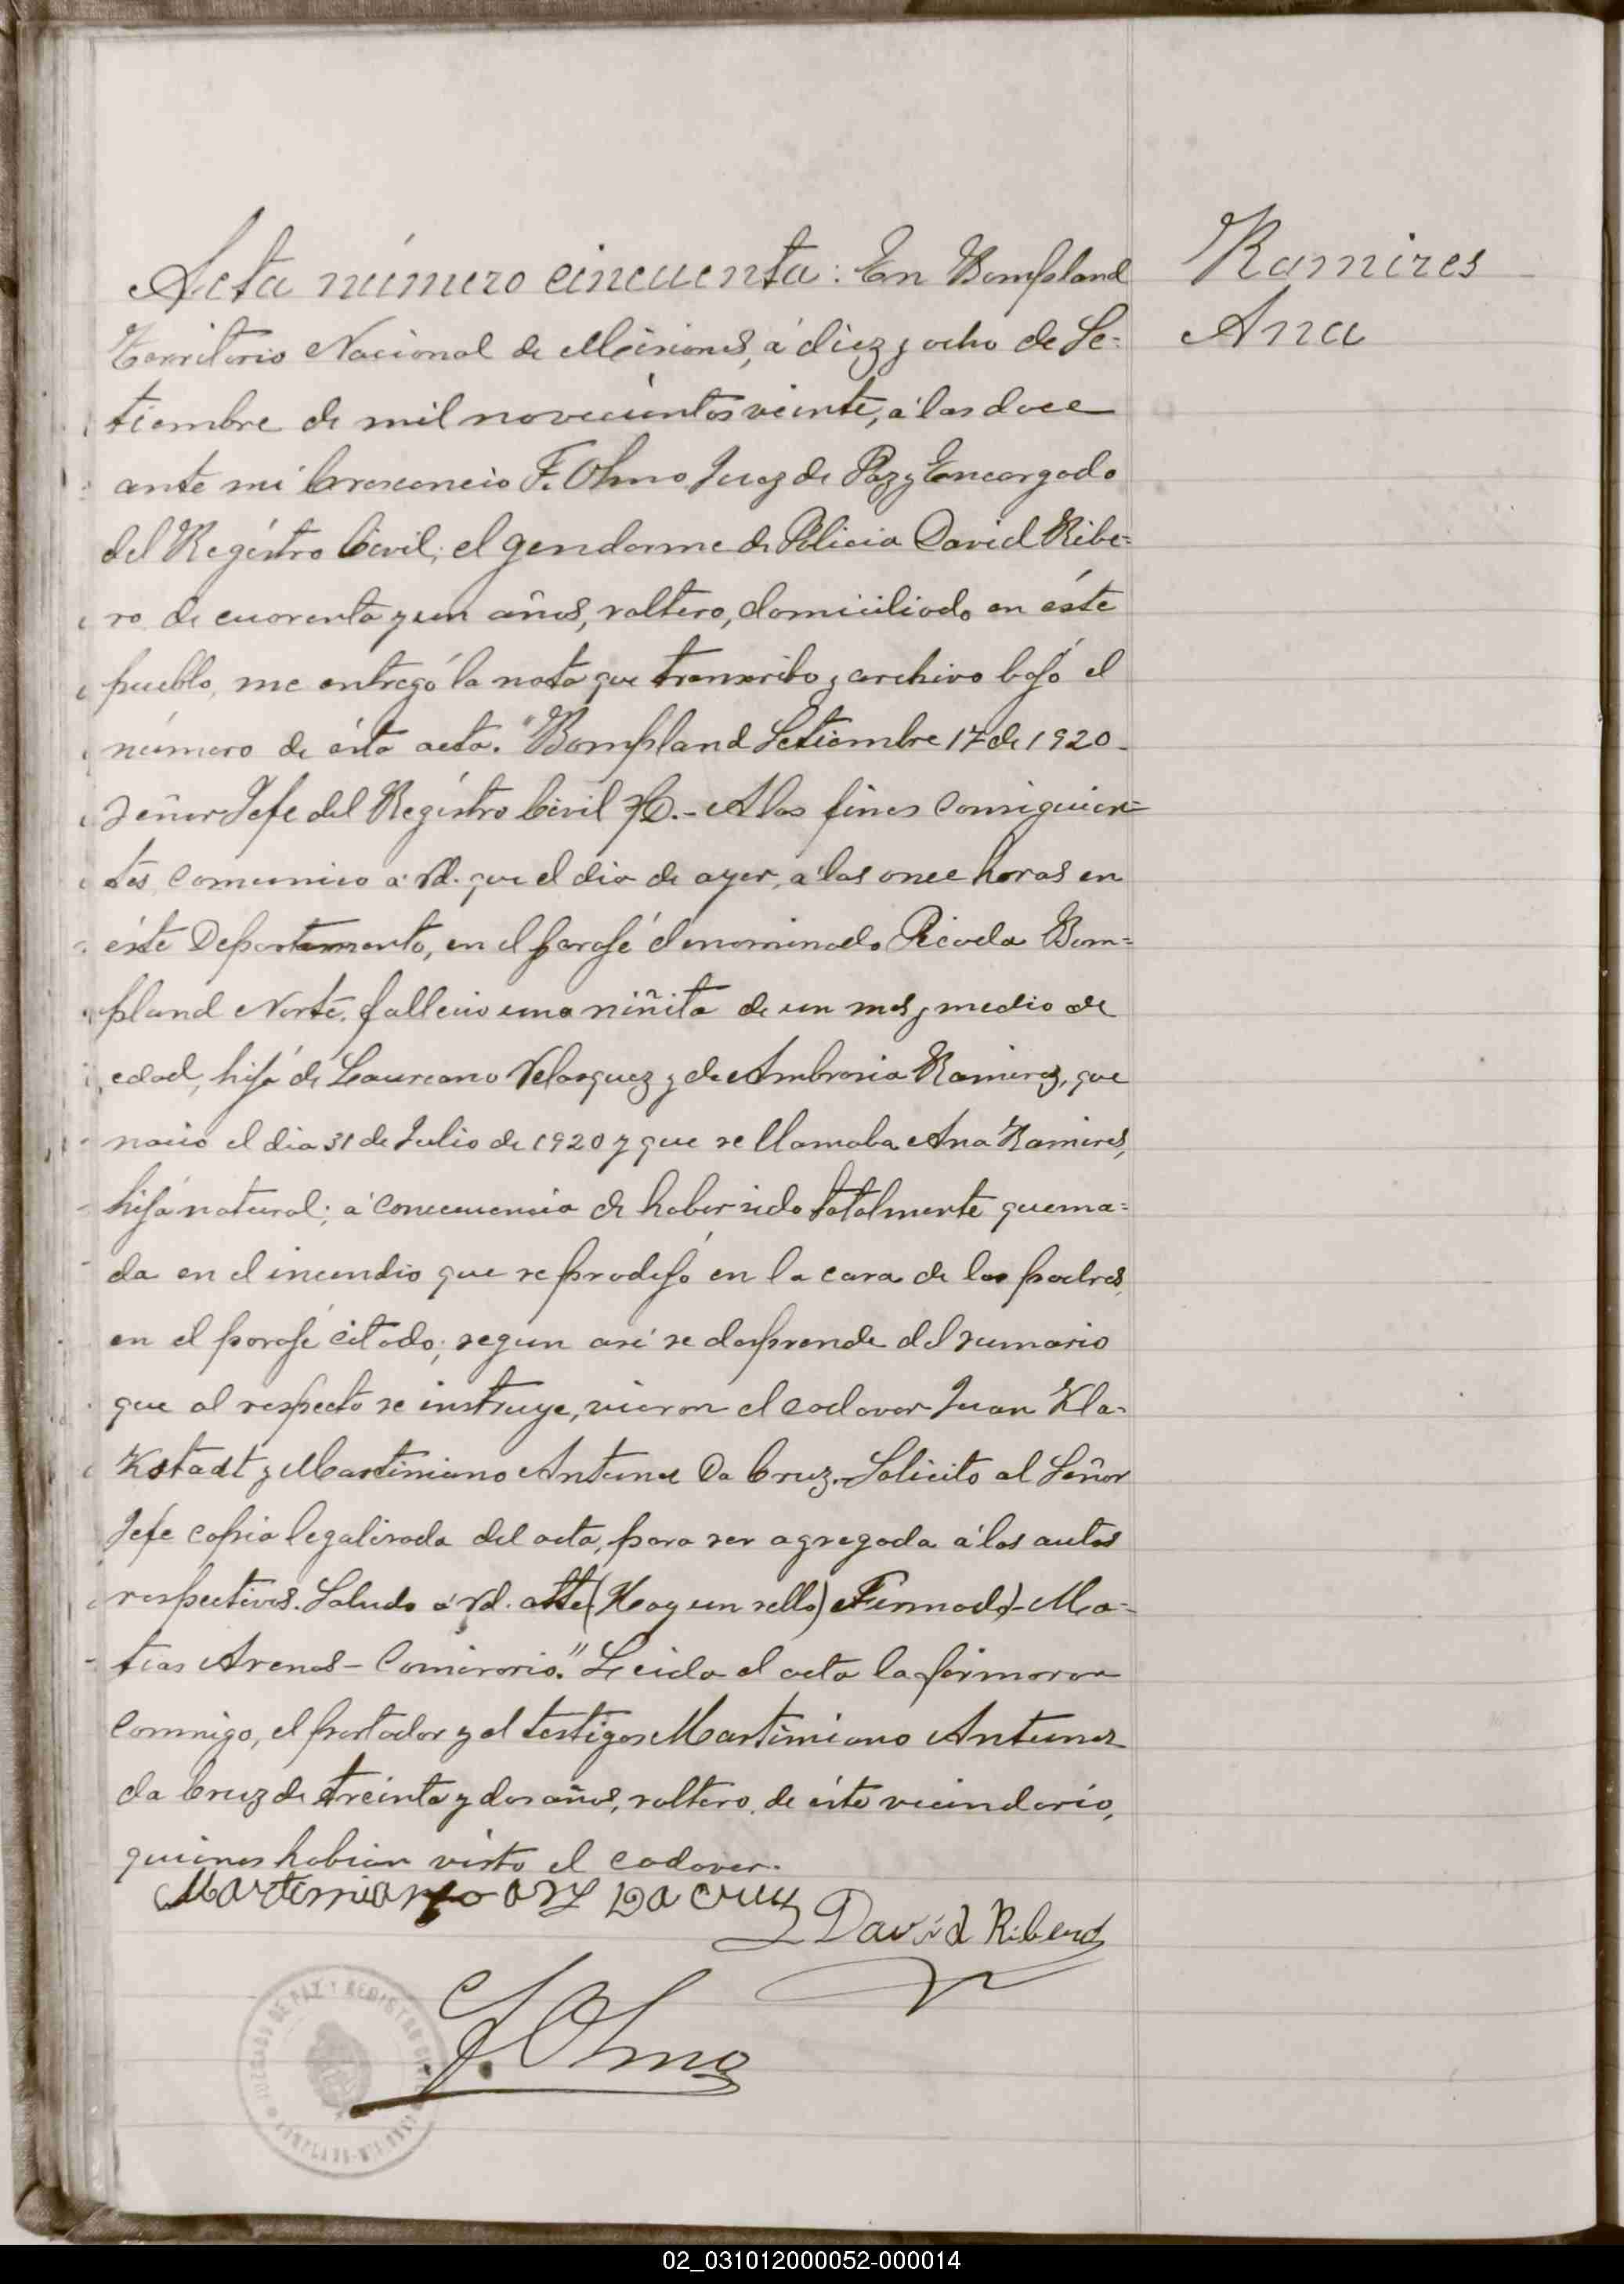 Ramires
Ana
Acta número cincuenta: En Bompland
Territorio Nacional de Misiones, á diez y ocho de Se=
tiembre de mil novecientos veinte, á las doce
ante mi Crescencio F. Olmo Juez de Paz y Encargado
del Regístro Civil, el gendarme de Policia David Ribe=
ro de cuarenta y un años, soltero, domiciliado en éste
pueblo, me entregó la nota que transcribo y archivo bajó el
número de ésta acta. "Bompland Setiembre 17 de 1920_
Señor Jefe del Regístro Civil _ A los fines consiguien=
tes comunico a Vd. que el dia de ayer, a las once horas en
éste Departamento, en el parajé denominado Picada Bom=
pland Norte, fallecio una niñita de un mes y medio de
edad, hija de Laureano Velasquez y de Ambrosia Ramirez, que
nacio el dia 31 de Julio de 1920 y que se llamaba Ana Ramires,
hija natural; á consecuencia de haber sido totalmente quema=
da en el incendio que se produjó en la casa de los padres,
en el parajé citado; segun asi se desprende del sumario
que al respecto se instruye, vieron el cadaver Juan Kla=
Kstadt y Martiniano Antunes Da Cruz._ Solicito al Señor
Jefe copia legalisada del acta, para ser agregada á los autos
respectivos. Saludo á Vd. atte (Hay un sello) Firmado)_ Ma=
tias Arenas _ Comisario." Leida el acta la firmaron
conmigo, el portador y el testigos Martimiano Antunes
da Cruz de treinta y dos años, soltero, de éste vecindario,
quienes habian visto el cadaver.
Martimiano Da Cruz
David Ribero
F. Olmo
JUZGADO DE PAZ Y REGISTRO CIVIL
BOMPLAND-MISIONES
02_031012000052-000014